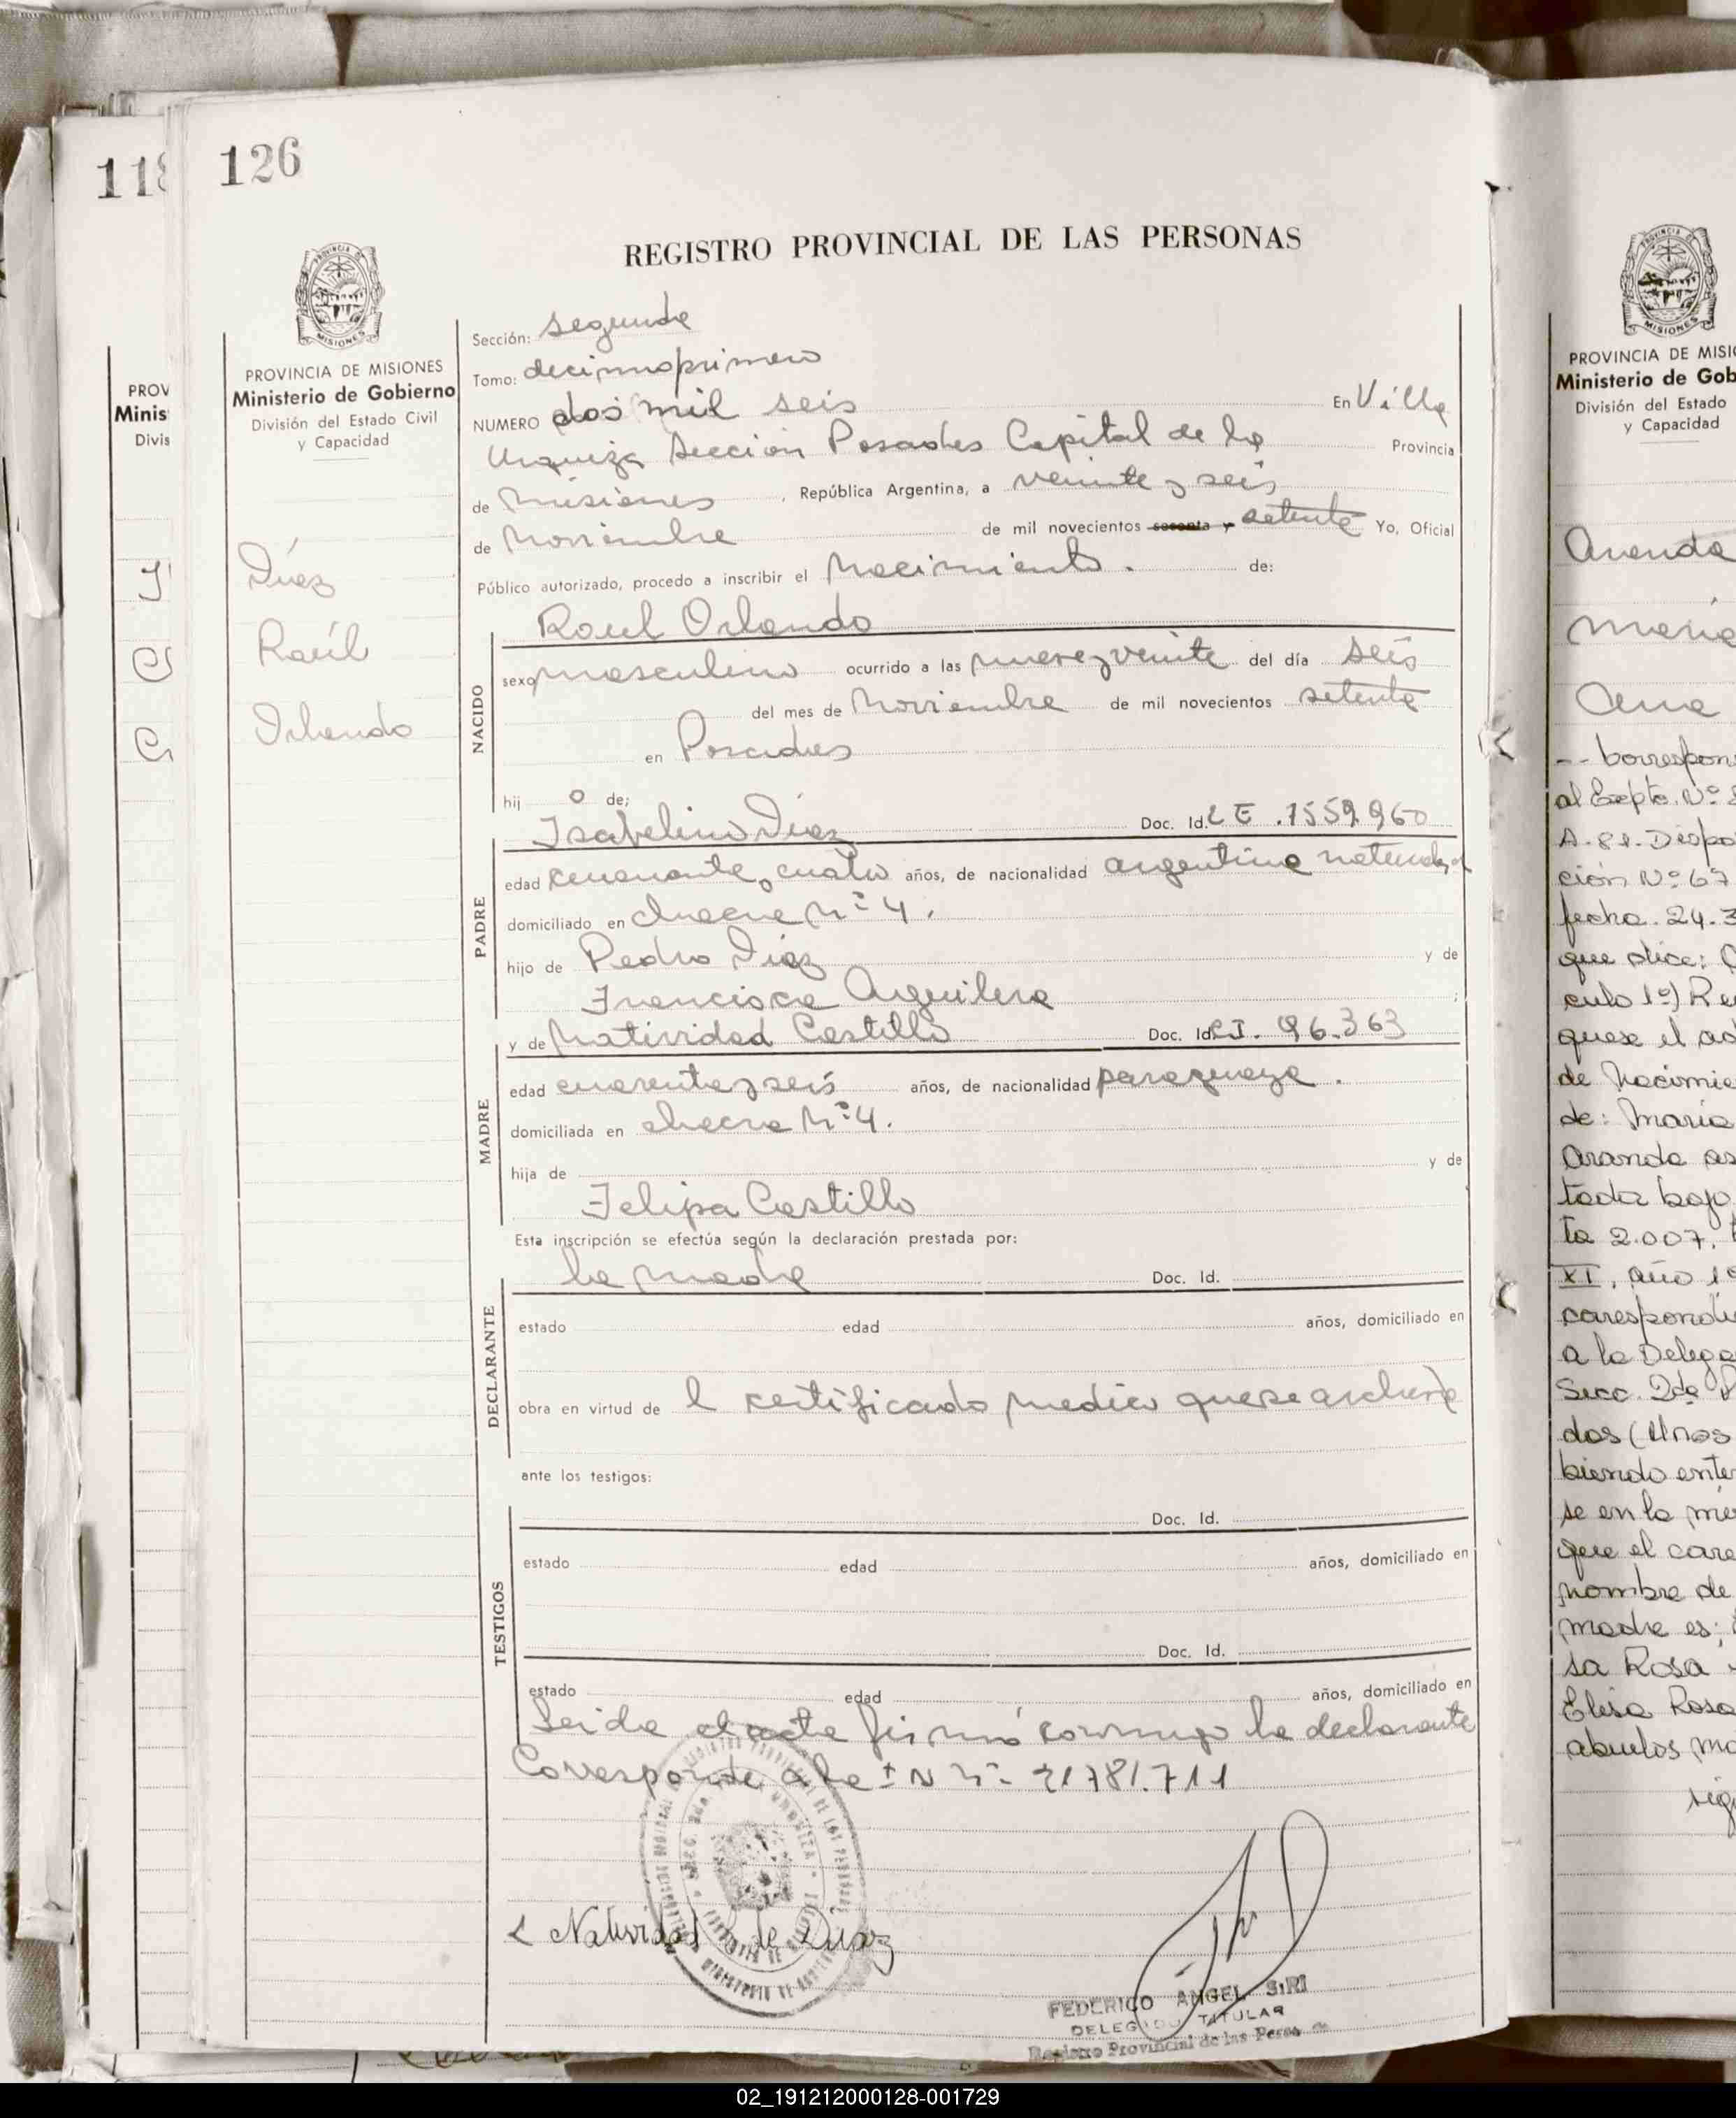 118
126
REGISTRO PROVINCIAL DE LAS PERSONAS
PROVINCIA DE MISIONES
Ministerio de Gobierno
División del Estado Civil
y Capacidad
Díaz
Raúl
Orlando
Sección: segunda
Tomo: decimoprimero
NUMERO dos mil seis En Villa
Urquiza Sección Posadas Capital de la Provincia
de Misiones, República Argentina, a veinte y seis
de Noviembre de mil novecientos sesenta y setenta Yo, Oficial
Público autorizado, procedo a inscribir el Nacimiento. de:
Raul Orlando
NACIDO
sexo masculino ocurrido a las nueve y veinte del día seis
del mes de Noviembre de mil novecientos setenta
en Posadas
hij o de;
Isabelino Díaz Doc. Id. L E .1559.960
PADRE
edad cuarenta y cuatro años, de nacionalidad argentina
domiciliado en chacra Nº 4.
hijo de Pedro Díaz y de
Francisca Aguilera
y de Natividad Castillo Doc. Id. C.I. 96.363
MADRE
edad cuarenta y seis años, de nacionalidad paraguaya.
domiciliada en chacra Nº 4.
hija de y de
Felipa Castillo
Esta inscripción se efectúa según la declaración prestada por:
la madre Doc. Id.
DECLARANTE
estado edad años, domiciliado en
obra en virtud de l certificado medico que se archiva
ante los testigos:
Doc. Id.
TESTIGOS
estado edad años, domiciliado en
Doc. Id.
estado edad años, domiciliado en
Leida el acta firmó conmigo la declarante
Corresponde a la Nº 21781.711
Natividad de Diaz
FEDERICO ANGEL SIRI
DELEGADO TITULAR
Registro Provincial de las Personas
PROVINCIA DE MISI
Ministerio de Gob
División del Estado
y Capacidad
Aranda
María
Ana
-- Correspon
al Expte. Nº 8
A-81. Dispo
ción Nº 67
fecha 24.3
que dice:
culo 1º) Re
quese el ac
de Nacimie
de: María
Aranda as
tada bajo
ta 2.007.
XI, año 19
correspondi
a la Delega
Secc. 2da
dos (Unos
biendo ente
se en la me
que el care
nombre de
madre es:
sa Rosa
Elisa Rosa
abuelos ma
sig
02_191212000128-001729